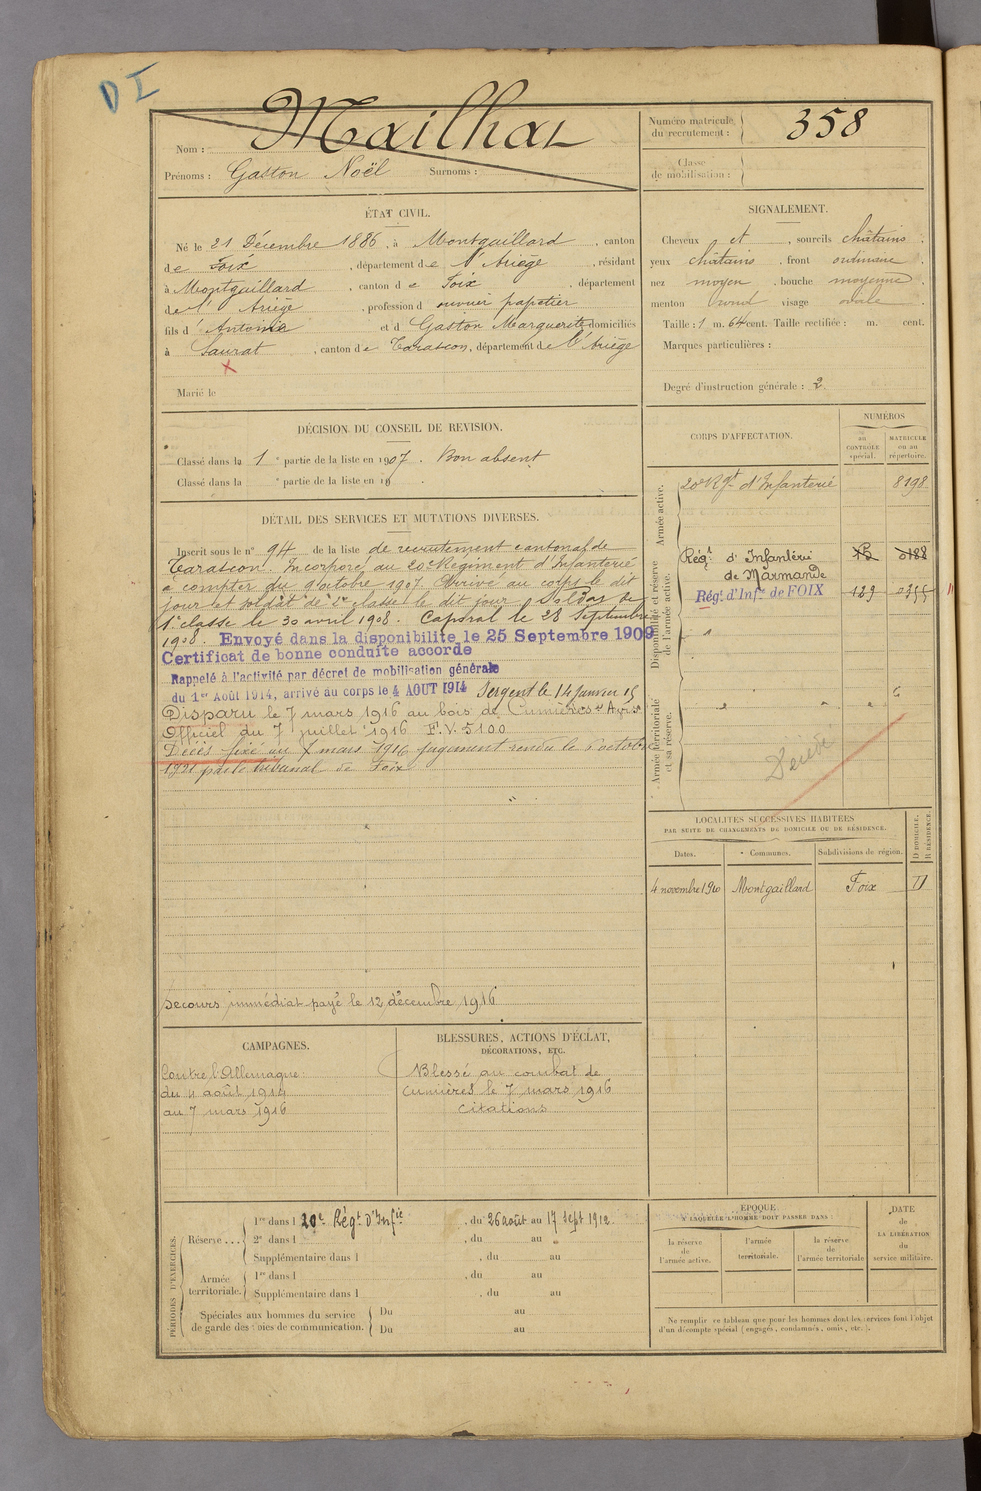 D I
Nom : Mailhat
Prénoms : Gaston Noël Surnoms :
Numéro matricule du recrutement : 358
Classe de mobilisation :
ÉTAT CIVIL.
Né le 21 Décembre 1886, à Montgaillard, canton
de Foix, département de l'Ariège, résidant
à Montgaillard, canton de Foix, département
de l'Ariège, profession d ouvrier papetier
fils d'Antoine et d Gaston Marguerite domiciliés
à Saurat, canton de Tarascon, département de l'Ariège
Marié le
SIGNALEMENT.
Cheveux et, sourcils châtains.
yeux châtains. front ordinaire.
nez moyen, bouche moyenne
menton rond visage ovale.
Taille : 1 m. 64 cent. Taille rectifiée : m. cent.
Marques particulières :
Degré d'instruction générale : 2.
DÉCISION DU CONSEIL DE REVISION.
Classé dans la 1e partie de la liste en 1907. Bon absent
Classé dans la e partie de la liste en 19 .
DÉTAIL DES SERVICES ET MUTATIONS DIVERSES.
Inscrit sous le n° 94 de la liste de recrutement cantonal de
Tarascon. Incorporé au 20e Régiment d'Infanterie
à compter du 9 octobre 1907. Arrivé au corps le dit
jour et soldat de 2e classe le dit jour. Soldat de
1e classe le 30 avril 1908. Caporal le 28 Septembre
1908. Envoyé dans la disponibilité le 25 Septembre 1909
Certificat de bonne conduite accordé
Rappelé à l'activité par décret de mobilisation générale
du 1er Août 1914, arrivé au corps le 4 AOUT 1914 Sergent le 14 janvier 15
Disparu le 7 mars 1916 au bois de Cumières Avis
Officiel du 7 juillet 1916 F.Y. 5100
Décès fixé au 7 mars 1916 jugement rendu le 6 octobre
1921 par le tribunal de Foix
Secours immédiat payé le 12 décembre 1916
CORPS D'AFFECTATION.
NUMÉROS
au CONTRÔLE spécial.
MATRICULE ou au répertoire.
Armée active.
20e Rgt d'Infanterie 8198
Disponibilité et réserve de l'armée active.
Régt d'Infanterie
de Marmande
Régt d'Infie de FOIX 129
Armée territoriale et sa réserve.
Décédé
LOCALITÉS SUCCESSIVES HABITÉES
PAR SUITE DE CHANGEMENTS DE DOMICILE OU DE RÉSIDENCE.
Dates. Communes. Subdivisions de région. D DOMICILE. R RÉSIDENCE.
4 novembre 1910 Montgaillard Foix D
CAMPAGNES.
Contre l'Allemagne :
du 4 août 1914
au 7 mars 1916
BLESSURES, ACTIONS D'ÉCLAT,
DÉCORATIONS, ETC.
Blessé au combat de
Cumières le 7 mars 1916
Citations
PÉRIODES D'EXERCICES.
Réserve ...
1re dans l 20e Régt d'Infie, du 26 août au 17 sept 1912.
2e dans l , du au
Supplémentaire dans l , du au
Armée territoriale.
1re dans l , du au
Supplémentaire dans l , du au
Spéciales aux hommes du service
de garde des voies de communication.
Du au
Du au
ÉPOQUE
A LAQUELLE L'HOMME DOIT PASSER DANS :
la réserve de l'armée active.
l'armée territoriale.
la réserve de l'armée territoriale
DATE de LA LIBÉRATION du service militaire.
Ne remplir ce tableau que pour les hommes dont les services font l'objet
d'un décompte spécial (engagés, condamnés, omis, etc.).